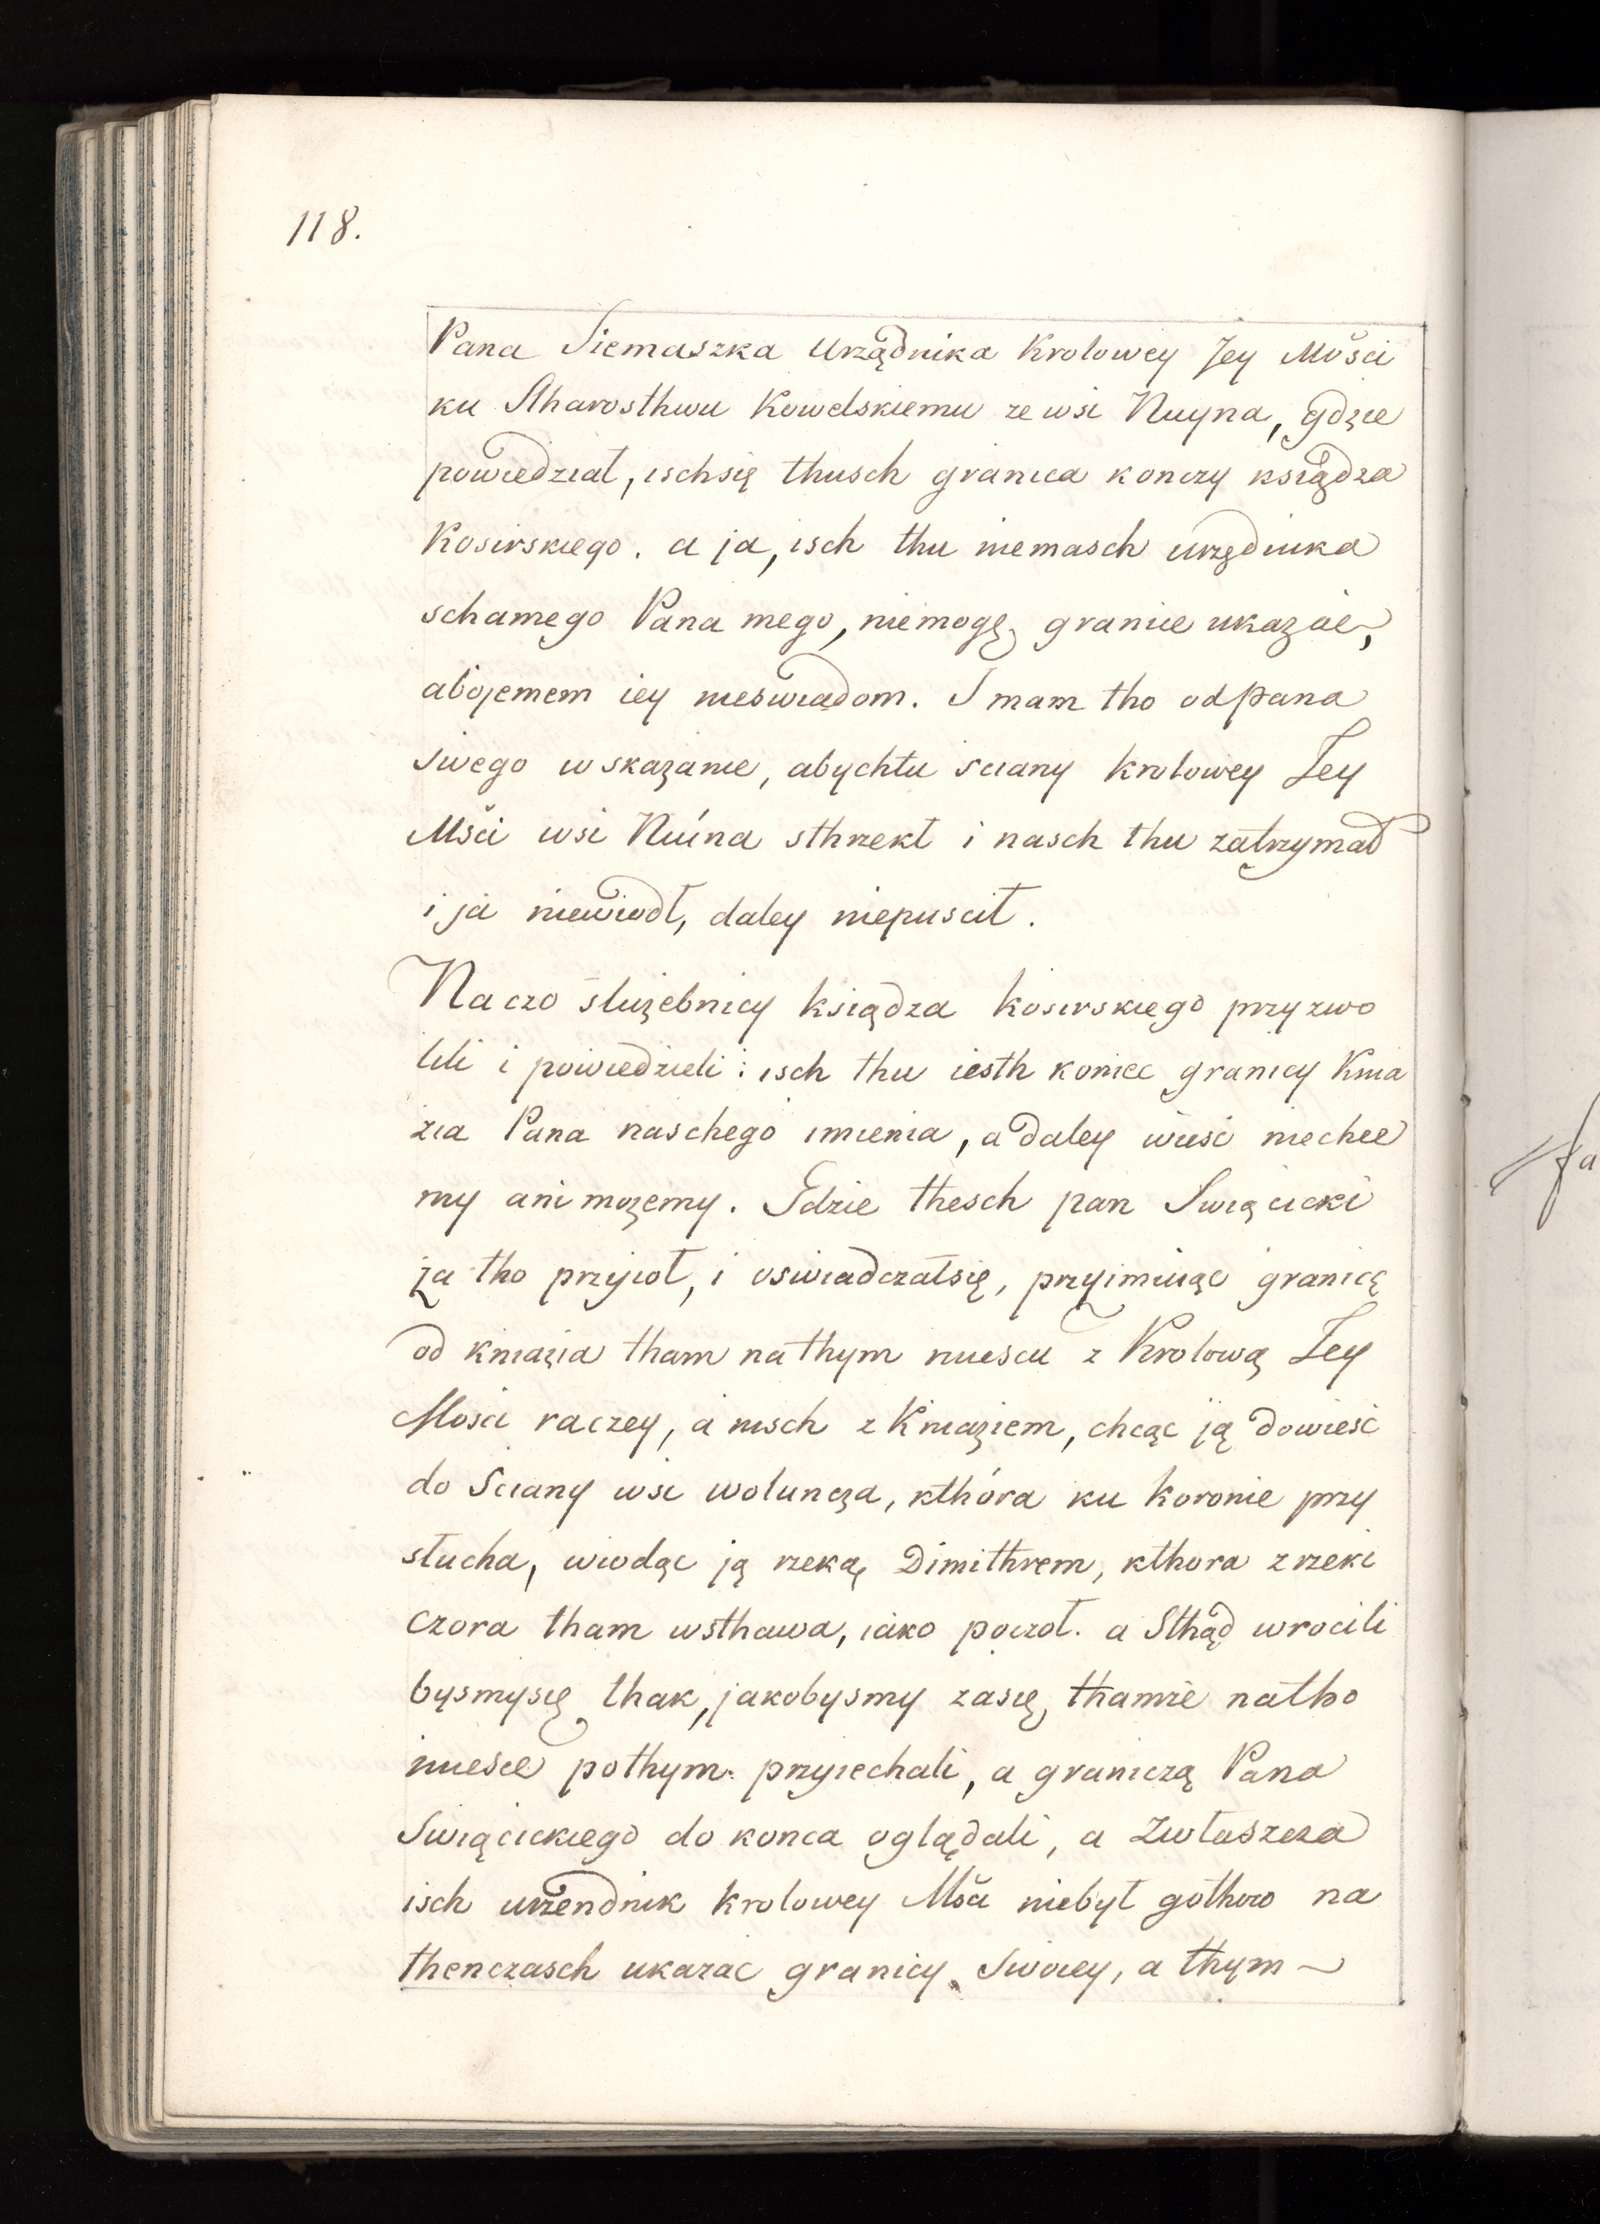 118.
Pana Siemaszka Urządnika Krolowey Jey Mości
ku Stharosthwu Kowelskiemu ze wsi Nuyna, gdzie
powiedział, ischsię thusch granica konczy księdza
Kosirskiego. a ja, isch thu niemasch urzędnika
schamego Pana mego, niemogę granice ukazać,
abojemem iey nieswiadom. I mam tho od pana
swego wskazanie, abychtu sciany krolowey Jey
Mści wsi Nuina sthrzekł i nasch thu zatrzymał
i ja niewiodł, daley niepuscił.
Naczo służebnicy księdza kosirskiego przyzwo
lili i powiedzieli: isch thu iesth koniec granicy Knia
zia Pana naschego imienia, a daley wiesć niechce
my ani mozemy. Gdzie thesch pan Swięcicki
za tho przyioł, i oswiadczałsię, przyimuiąc granicę
od kniazia tham nathym miescu z Krolową Jey
Mosci raczey, a nisch z Kniaziem, chcąc ją dowiesć
do Sciany wsi woluncza, kthóra ku koronie przy
słucha, wiodąc ją rzeką Dimithrem, kthora z rzeki
czora tham wsthawa, iako poczoł. a Sthąd wrocili
bysmysię thak, jakobysmy zasię thamże natho
miesce pothym przyiechali, a graniczą Pana
Swięcickiego do konca oglądali, a Zwłaszcza
isch urzendnik krolowey Mści niebył gothow na
thenczasch ukazac granicy Swoiey, a thym
fa